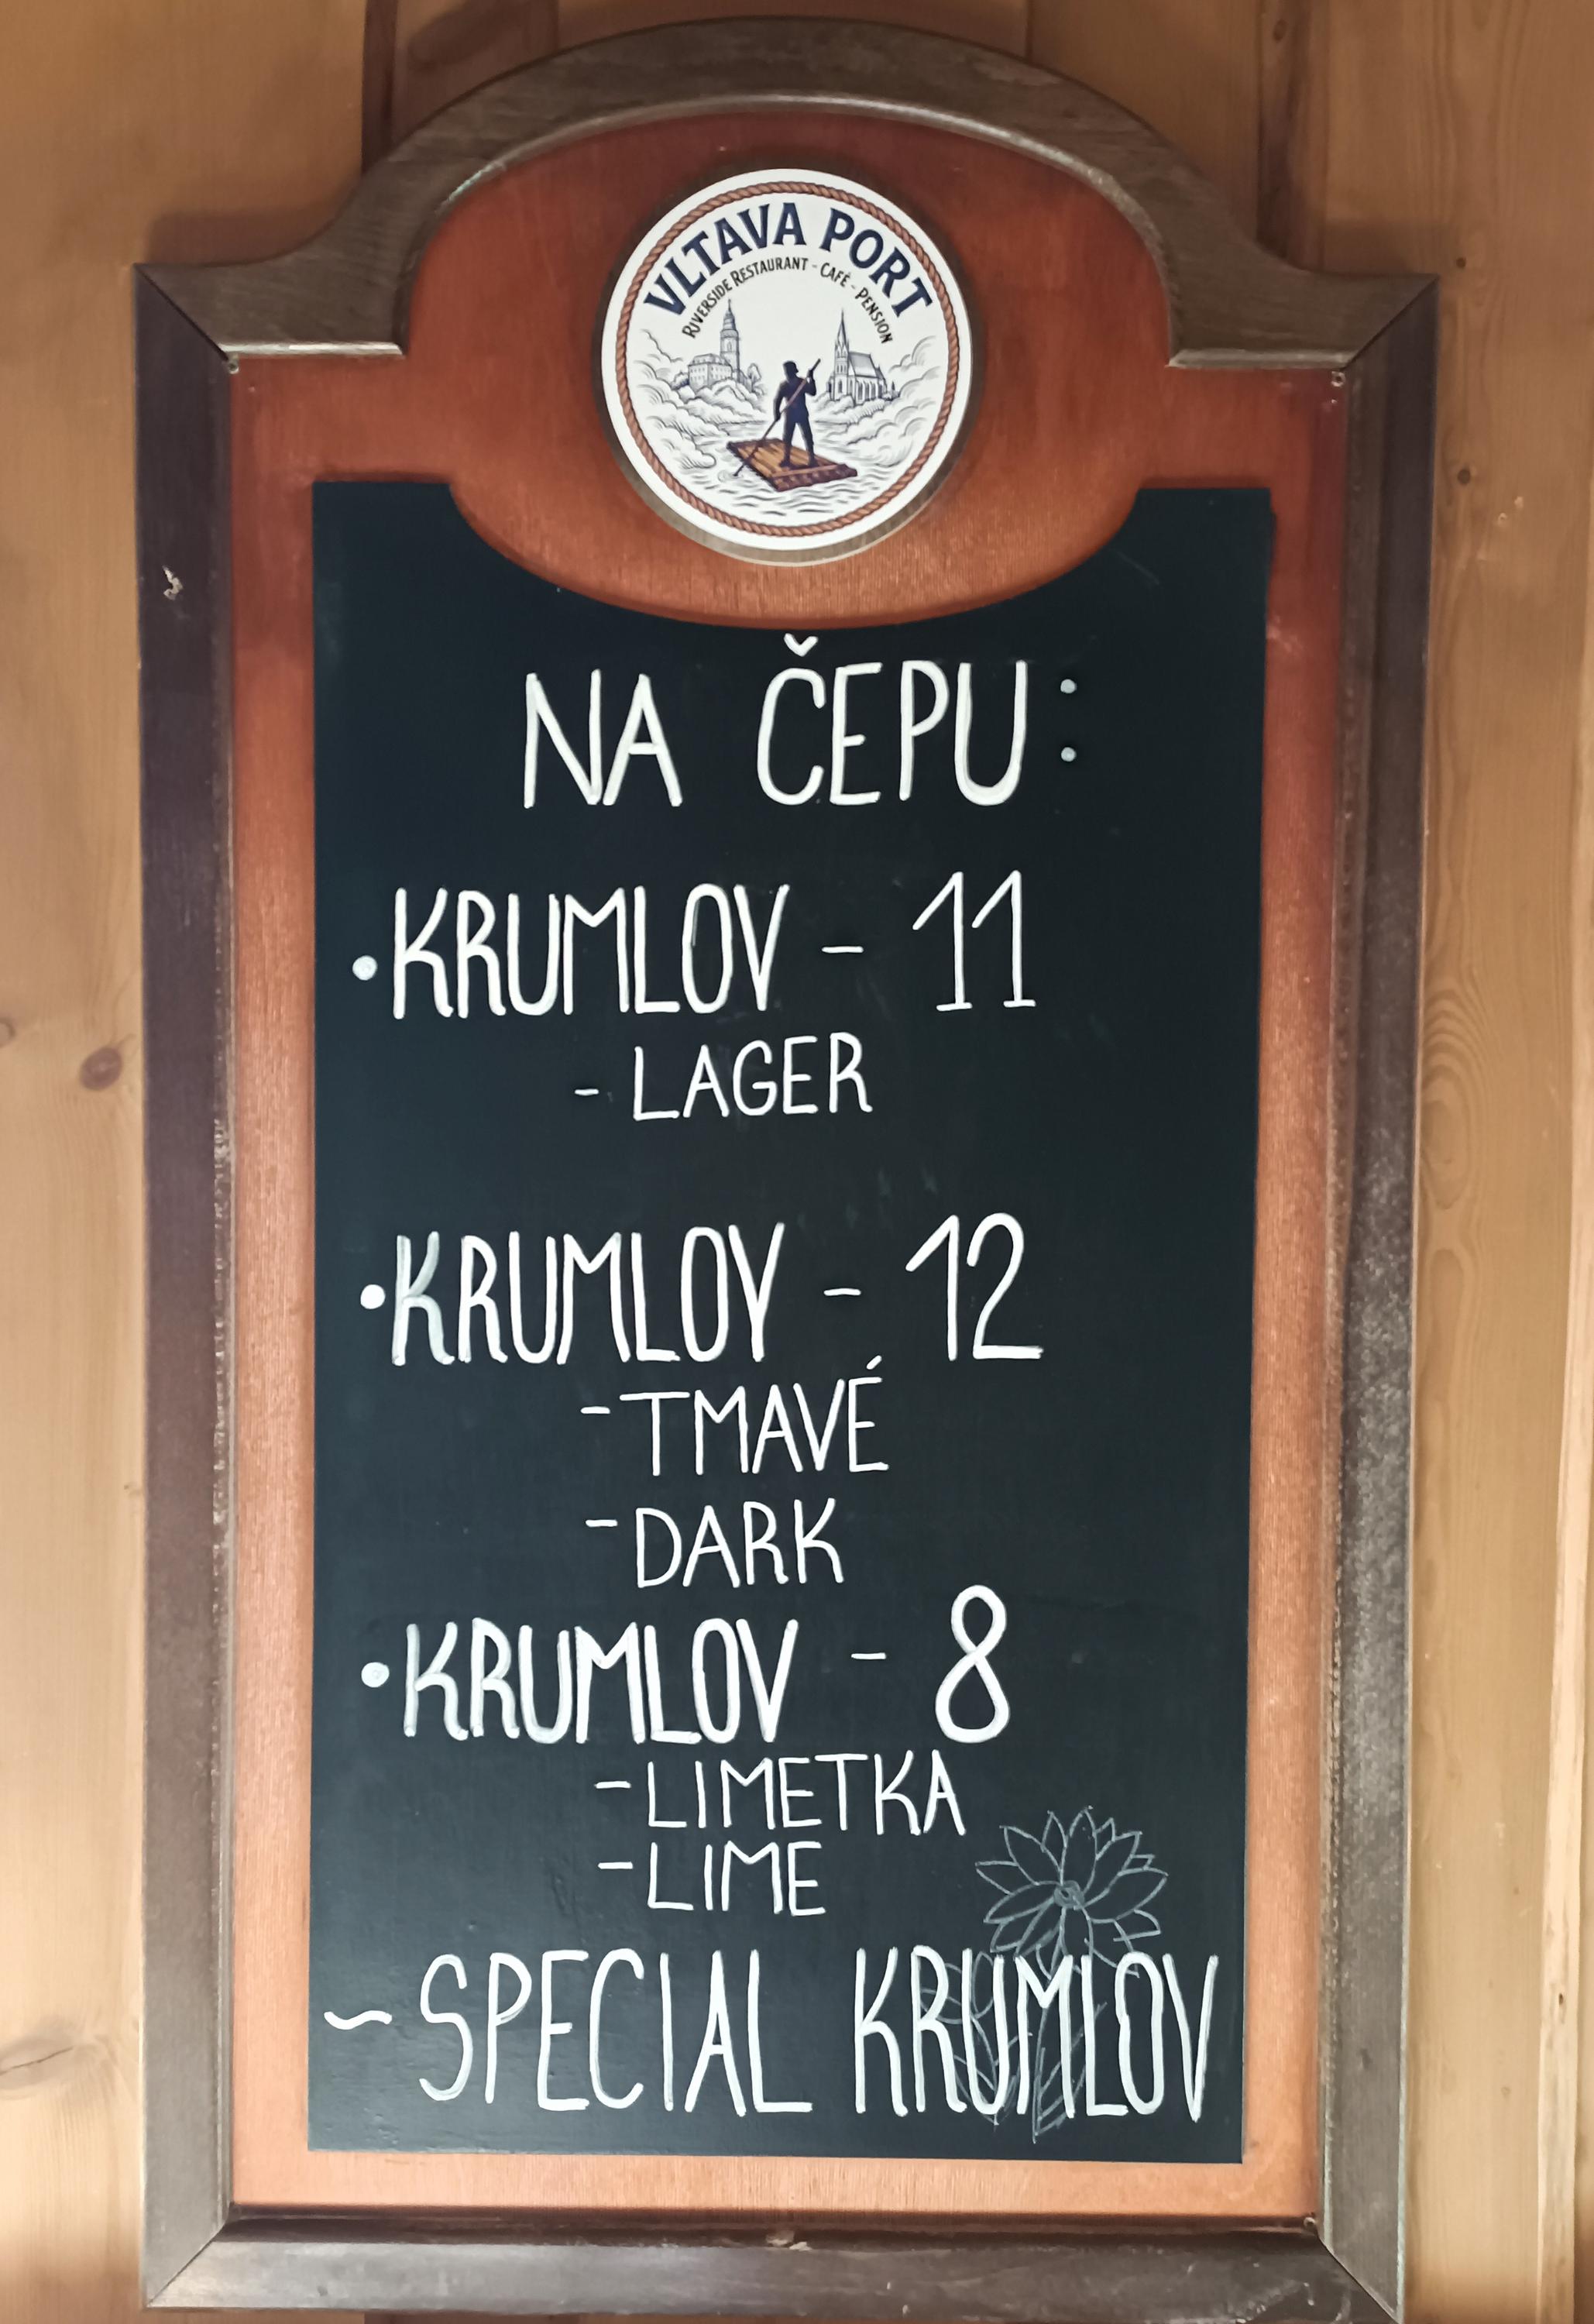 VLTAVA PORT
RIVERSIDE RESTAURANT - CAFÉ - PENSION
NA ČEPU:
•KRUMLOV - 11
- LAGER
•KRUMLOV - 12
- TMAVÉ
- DARK
•KRUMLOV - 8
- LIMETKA
- LIME
~ SPECIAL KRUMLOV